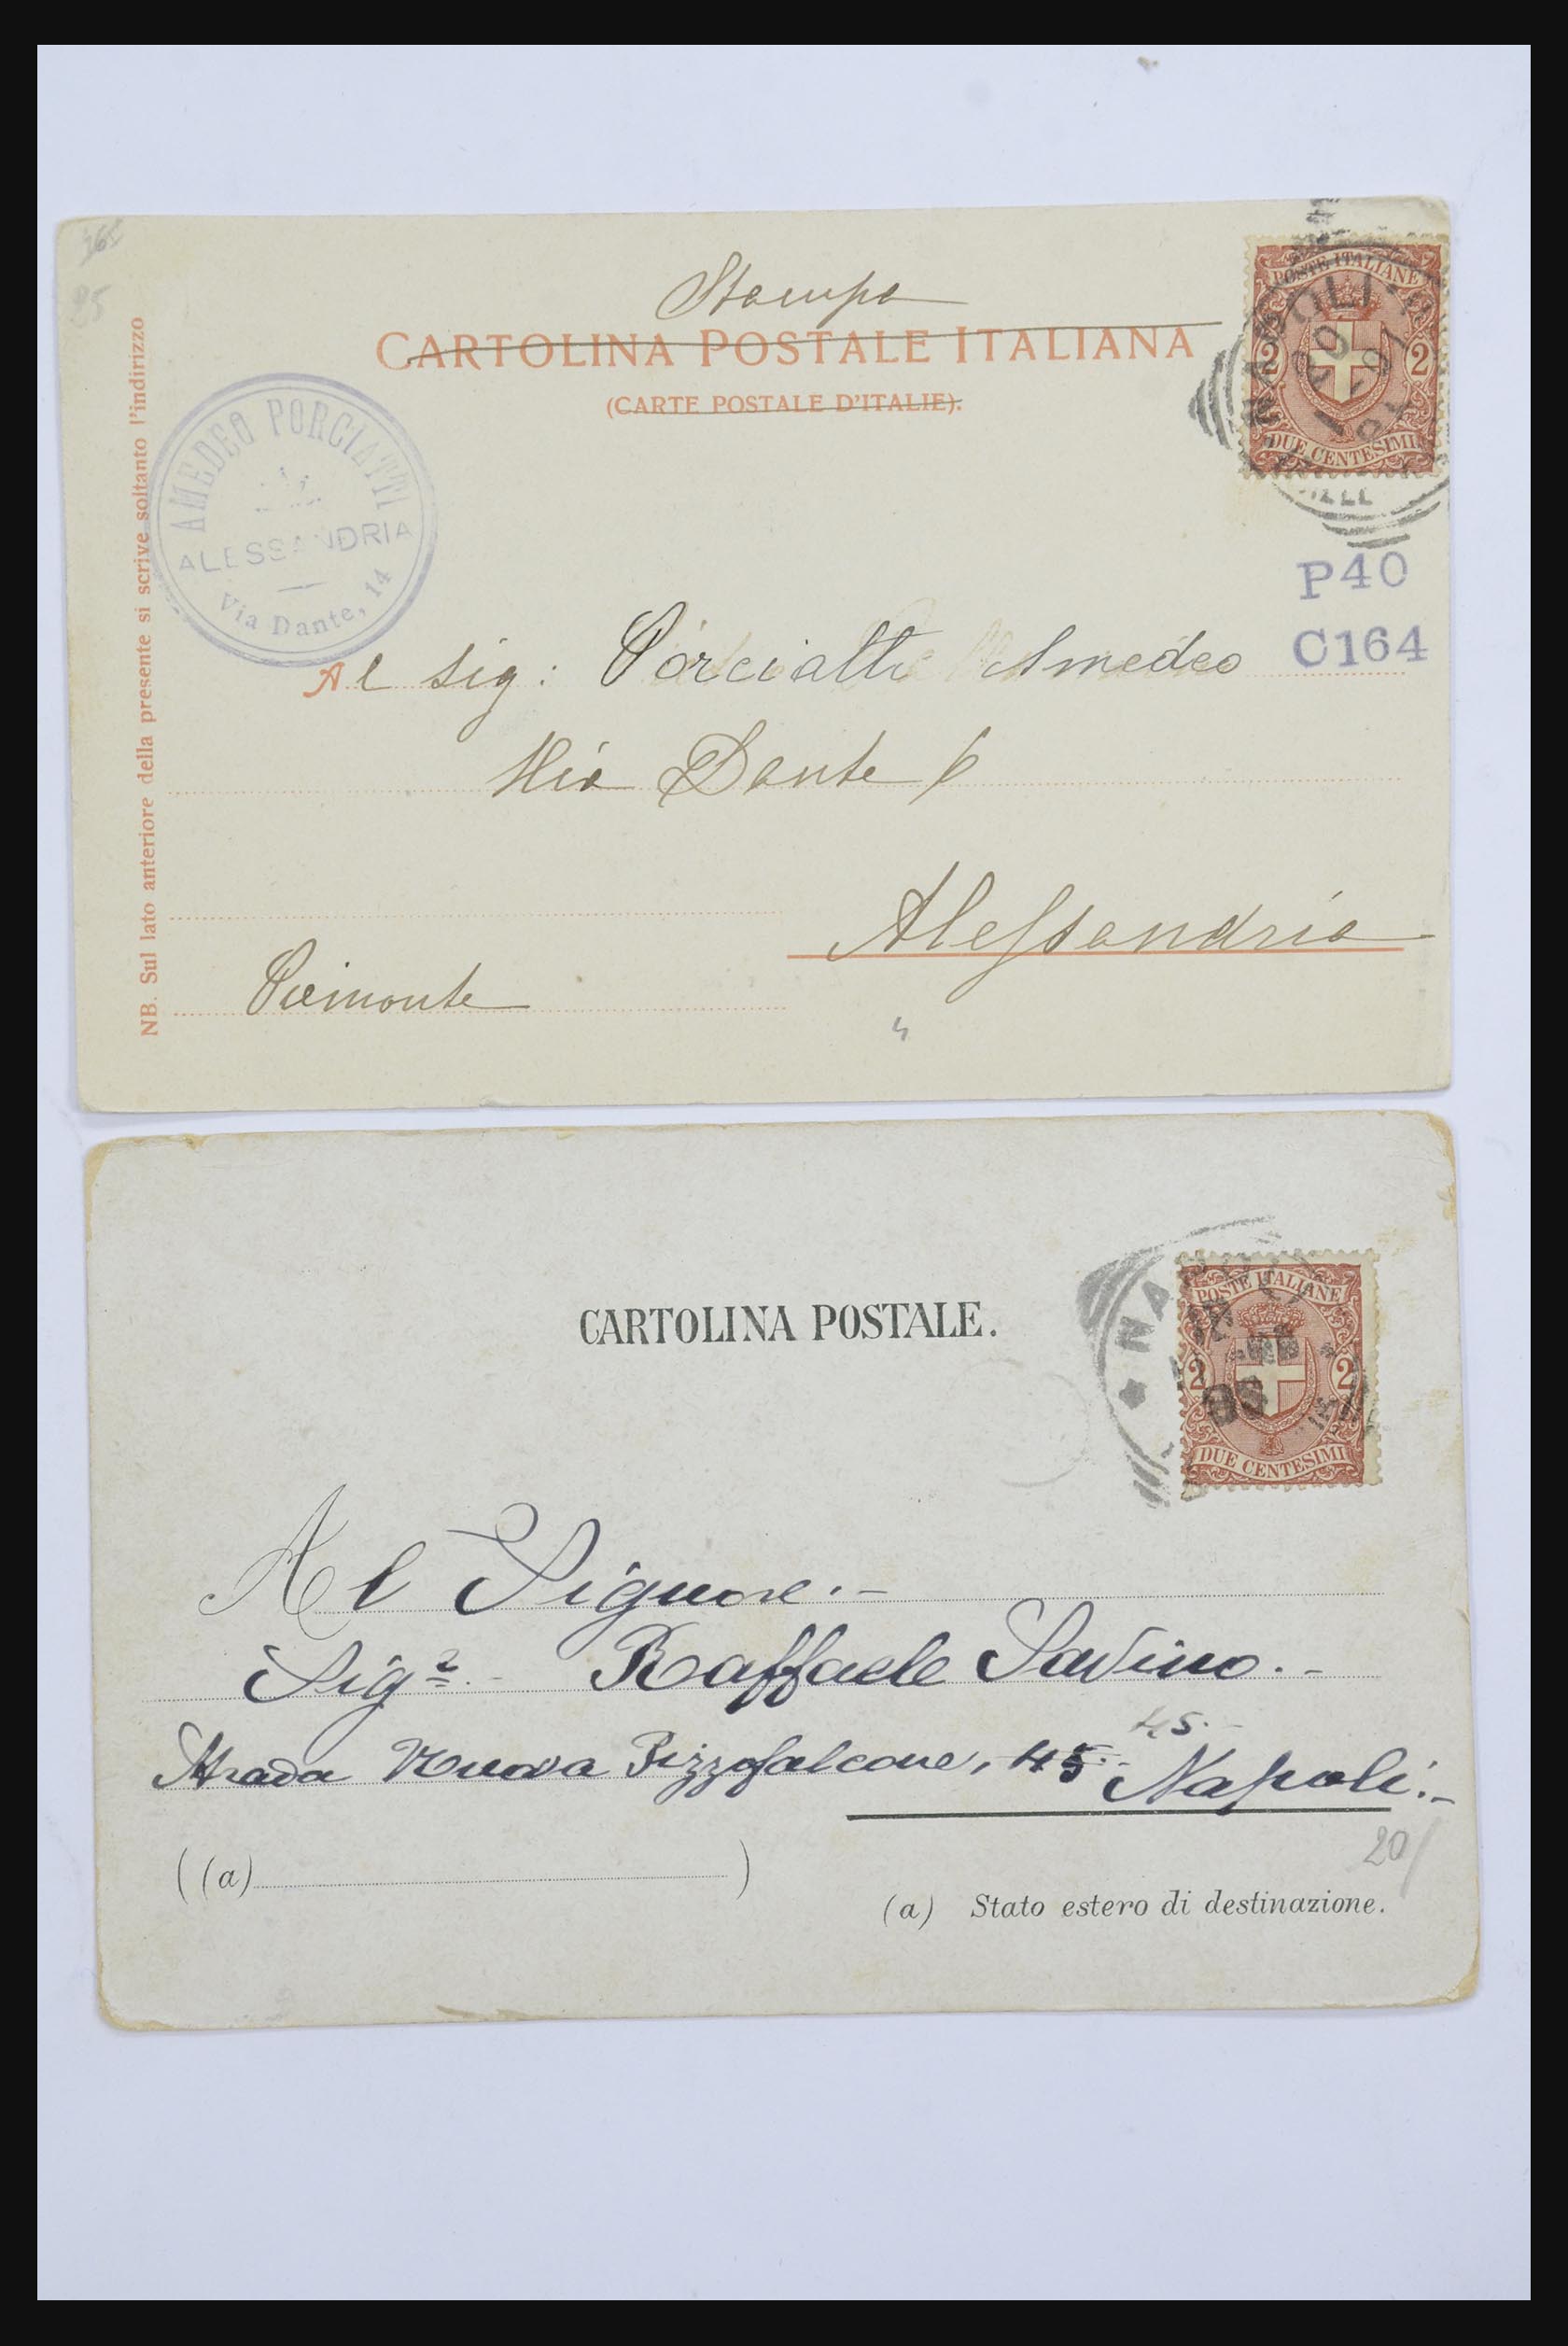 Stampa
CARTOLINA POSTALE ITALIANA
(CARTE POSTALE D'ITALIE).
POSTE ITALIANE
2 2
DUE CENTESIMI
NAPOLI
NB. Sul lato anteriore della presente si scrive soltanto l'indirizzo
AMEDEO PORCIATTI
ALESSANDRIA
Via Dante, 14
P40
C164
Al sig: Porciatti Amedeo
Via Dante 6
Alessandria
Piemonte
CARTOLINA POSTALE.
POSTE ITALIANE
2 2
DUE CENTESIMI
Al Signore.-
Sigr. - Raffaele Savino.-
45.-
Strada Nuova Pizzofalcone, 45.- Napoli.-
20/
((a) )
(a) Stato estero di destinazione.